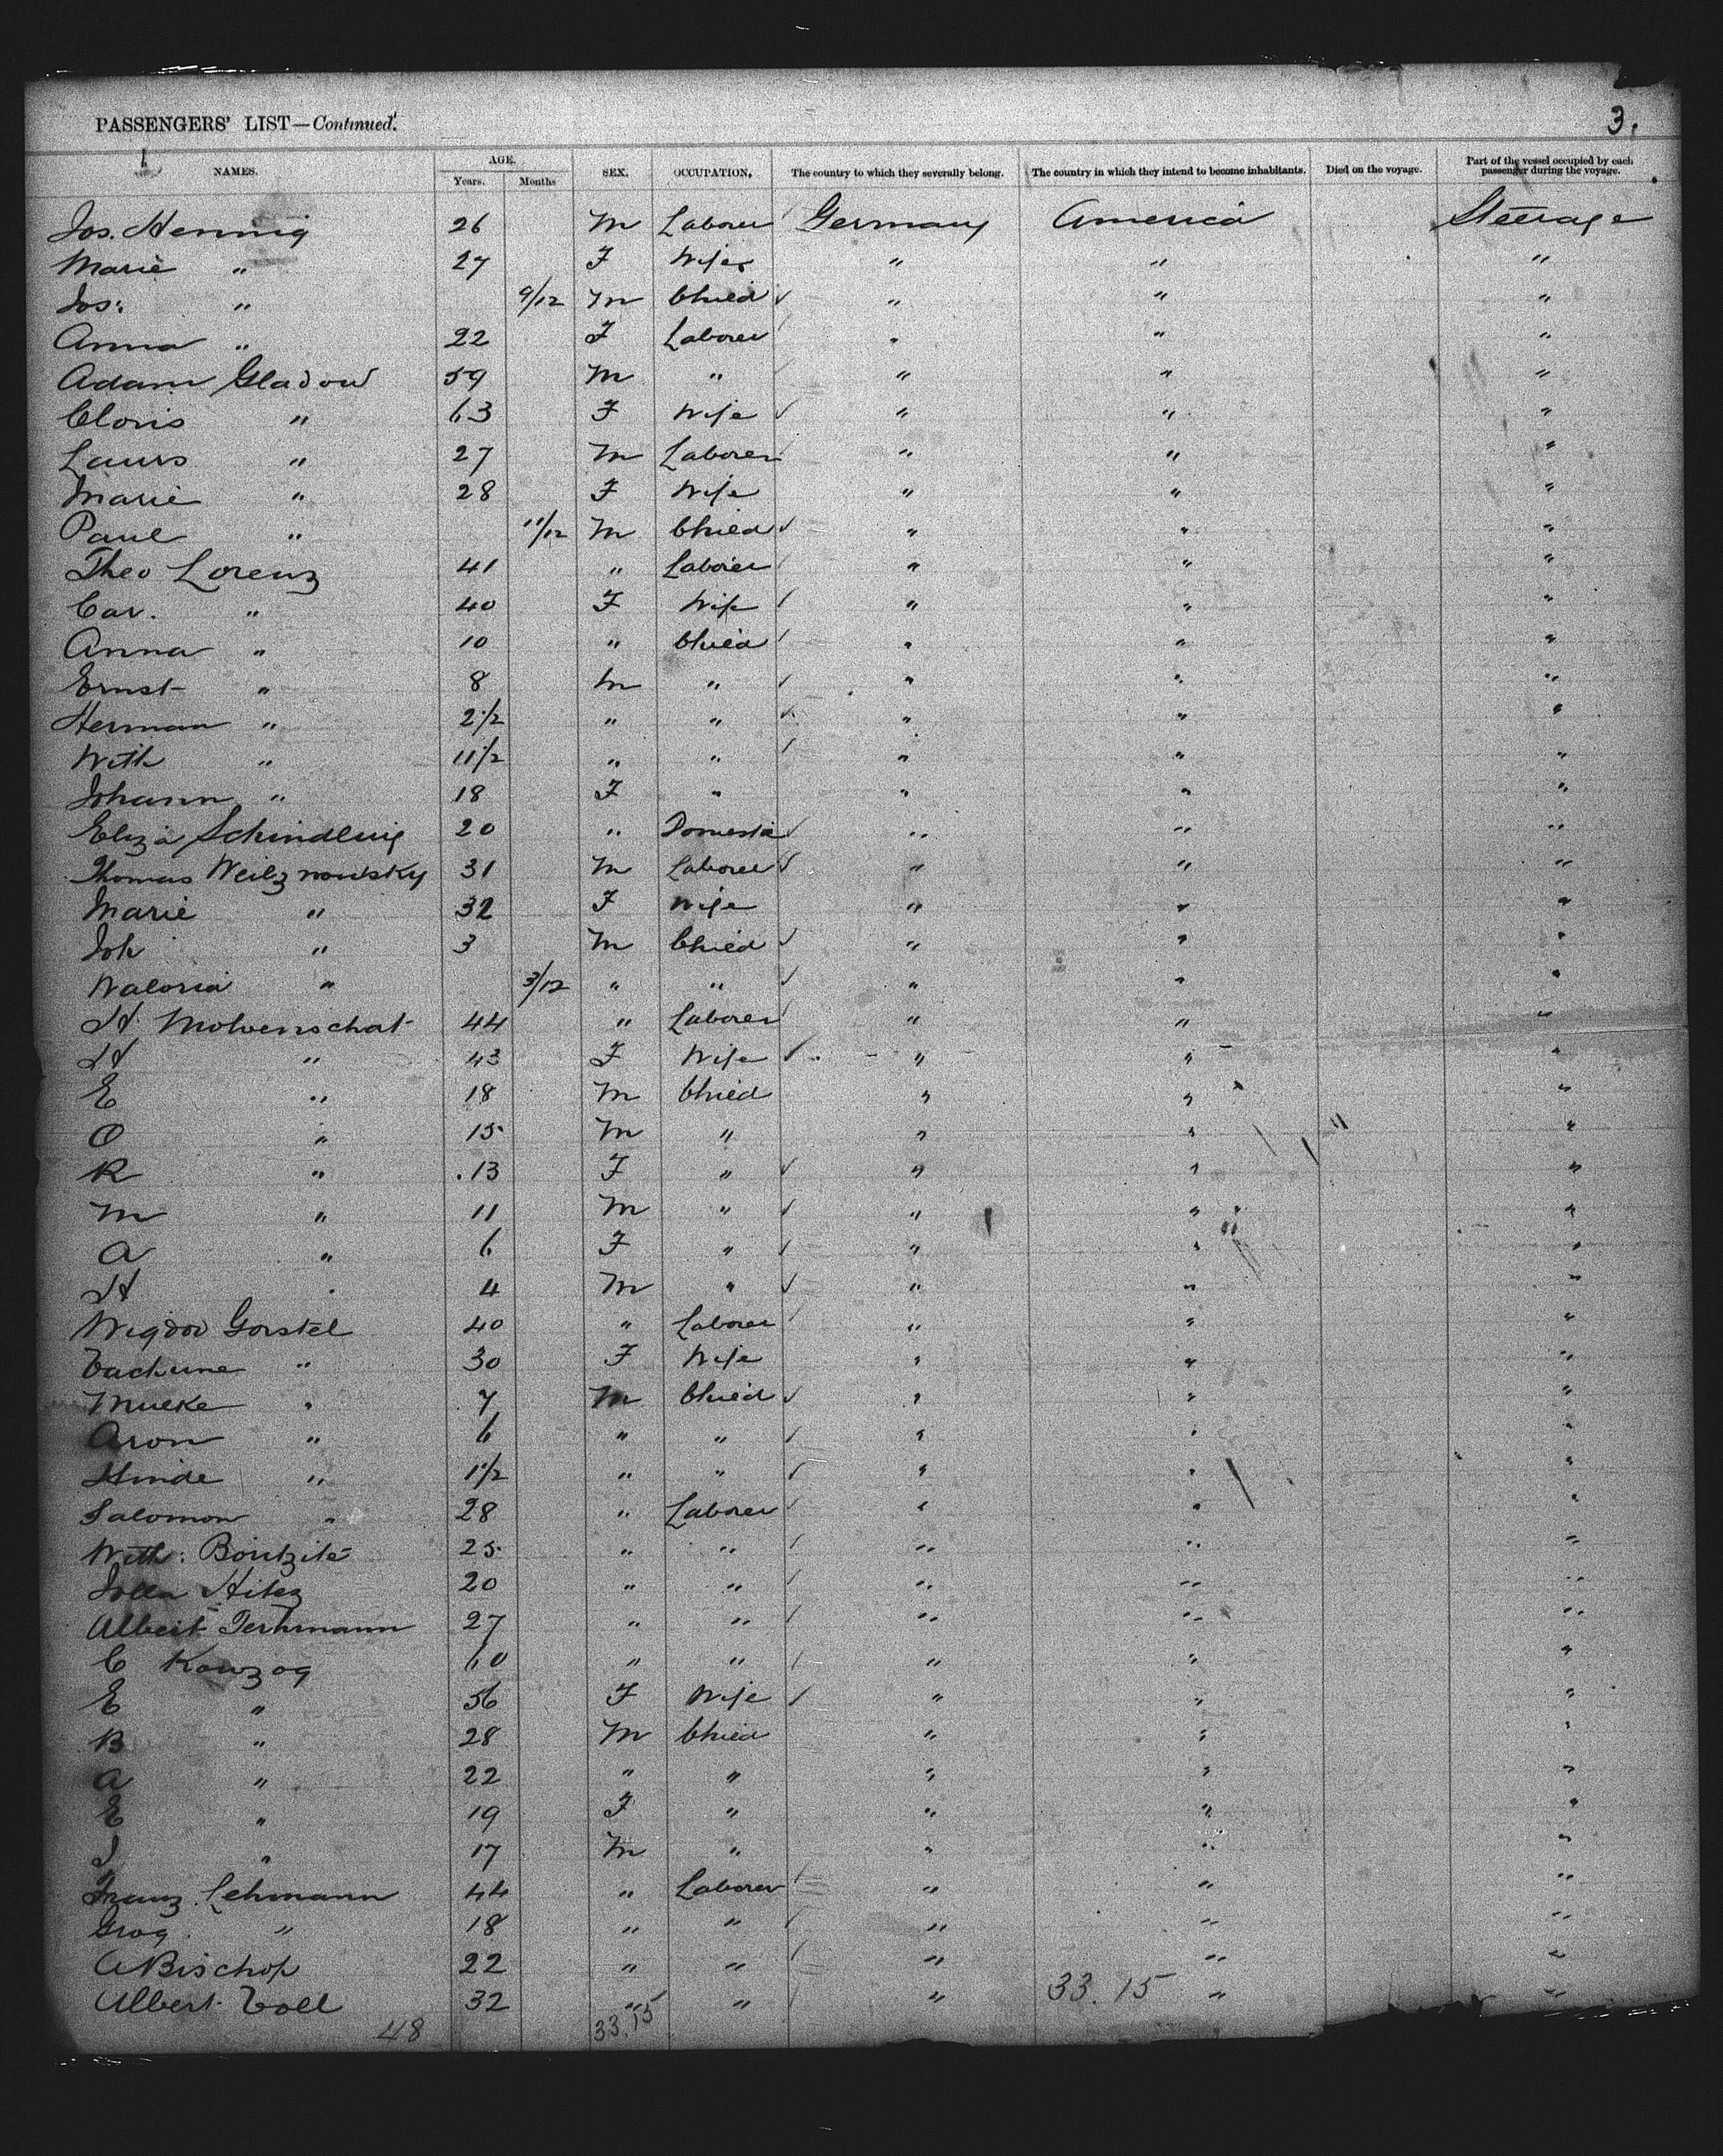 PASSENGERS' LIST—Continued. 3.
NAMES. AGE. Years. Months SEX. OCCUPATION. The country to which they severally belong. The country in which they intend to become inhabitants. Died on the voyage. Part of the vessel occupied by each passenger during the voyage.
Jos. Hennig 26 M Laborer Germany America Steerage
Marie " 27 F Wife " " "
Jos: " 9/12 M Child " " "
Anna " 22 F Laborer " " "
Adam Gladow 59 M " " " "
Cloris " 63 F Wife " " "
Laurs " 27 M Laborer " " "
Marie " 28 F Wife " " "
Paul " 11/12 M Child " " "
Theo Lorenz 41 " Laborer " " "
Car. " 40 F Wife " " "
Anna " 10 " Child " " "
Ernst " 8 M " " " "
Herman " 2 1/2 " " " " "
With " 11/2 " " " " "
Johann " 18 F " " " "
Eliza 20 " Domestic " " "
Thomas 31 M Laborer " " "
Marie " 32 F Wife " " "
Joh " 3 M Child " " "
Waloria " 3/12 " " " " "
H. Molvenschat 44 " Laborer " " "
H " 43 F Wife " " "
E " 18 M Child " " "
O " 15 M " " " "
R " 13 F " " " "
M " 11 M " " " "
A " 6 F " " " "
H " 4 M " " " "
Wigdor Gorstel 40 " Laborer " " "
" 30 F Wife " " "
Mueke " 7 M Child " " "
Aron " 6 " " " " "
Hinde " 1 1/2 " " " " "
Salomon " 28 " Laborer " " "
With: 25 " " " " "
20 " " " " "
Albert Terhmann 27 " " " " "
C Kowzog 60 " " " " "
E " 56 F Wife " " "
B " 28 M Child " " "
A " 22 " " " " "
E " 19 F " " " "
J " 17 M " " " "
Franz Lehmann 44 " Laborer " " "
Grog. " 18 " " " " "
A Bischof 22 " " " " "
Albert Toll 32 " " " 33.15 " "
48 33.15